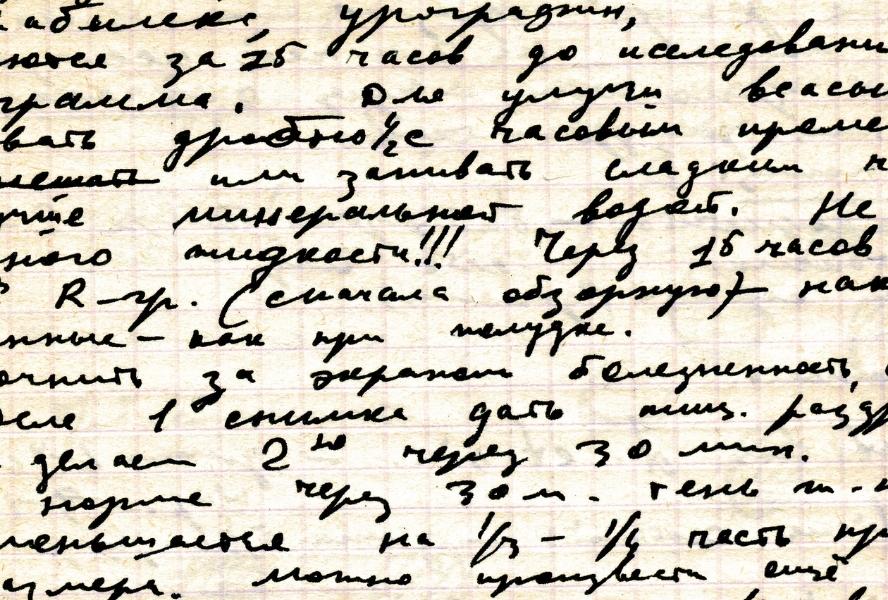 урографин,
ются за 15 часов до исследовани
грамма. Для улучш всасы
вать дробно 1/2 с часовым проме
мешать или запивать сладким ч
учше минеральной водой. Не
ного жидкости!!! Через 15 часов
R-гр. (сначала обзорную)
нные – как при желудке.
очнить за экраном болезненность,
осле 1 снимка дать пищ. раздр
делаем 2ю через 30 мин.
норме через 30 м. тень
меньшается на 1/3 – часть пр
азмера. Можно произвести ещё